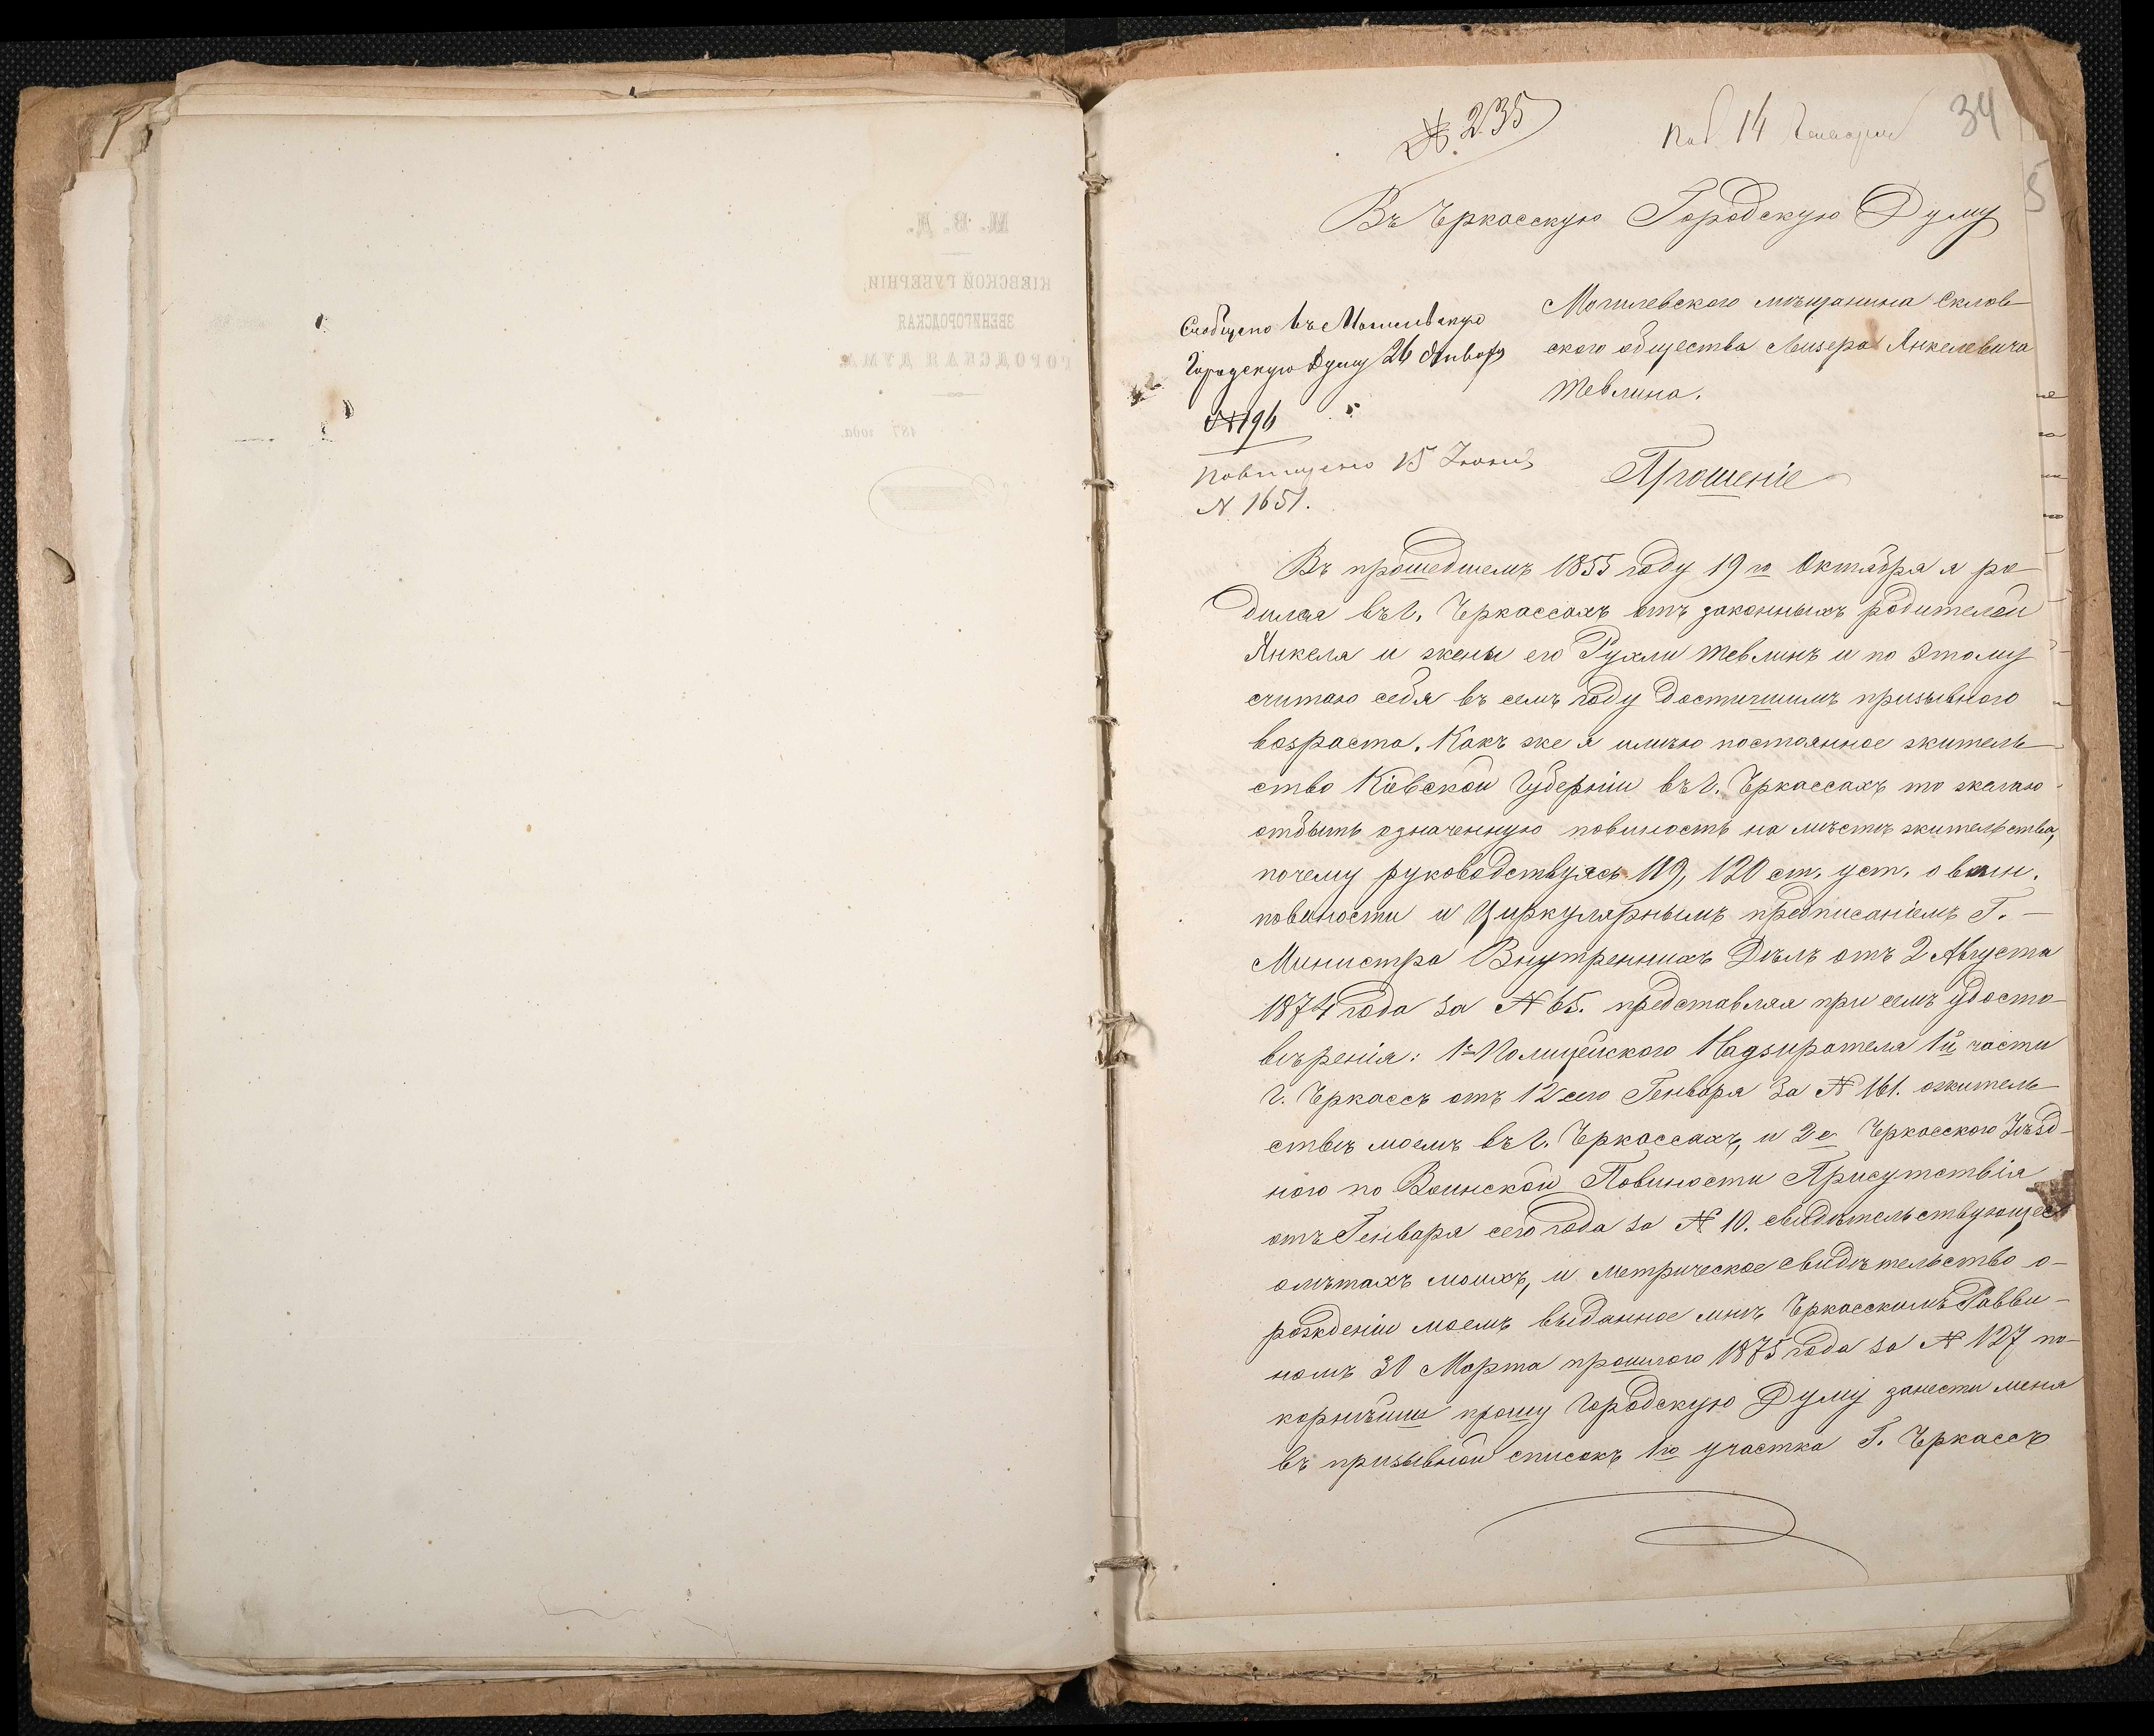 М. В. Д.
КІЕВСКОЙ ГУБЕРНІИ,
ЗВЕНИГОРОДСКАЯ
ГОРОДСКАЯ ДУМА
187 года.
№ 235
пол. 14 Генваря
34
5
Въ Черкасскую Городскую Думу
Могилевского мѣщанина Склов-
ского общества Лизера Янкелевича
Тевлина.
Сообщено въ Могилевскую
Городскую Думу 26 Января
№ 196
Повторено 15 Іюня
№ 1651.
Прошеніе
Въ прошедшемъ 1855 году 19го Октября я ро-
дился въ г. Черкассахъ отъ законныхъ родителей
Янкеля и жены его Рухли Тевлинъ и по этому
считаю себя въ семъ году достигшимъ призывного
возраста. Какъ же я имѣю постоянное житель-
ство Кіевской Губерніи въ г. Черкассахъ то желаю
отбыть означенную повиность на мѣстѣ жительства,
почему руководствуясь 119, 120 ст. уст. о воин.
повиности и Циркулярнымъ предписаніемъ Г.
Министра Внутреннихъ Дѣлъ отъ 2 Августа
1874 года за № 65. представляя при семъ удосто-
вѣренія: 1е Полицейского Надзирателя 1й части
г. Черкассъ отъ 12 сего Генваря за № 161. о житель-
ствѣ моемъ въ г. Черкассахъ, и 2е Черкасского Уѣзд-
ного по Воинской Повиности Присутствія
отъ Генваря сего года за № 10. свидѣтельствующее
о лѣтахъ моихъ, и метрическое свидѣтельство о-
рожденіи моемъ выданное мнѣ Черкасскимъ Равви-
номъ 30 Марта прошлого 1875 года за № 127 по-
корнѣйше прошу Городскую Думу занести меня
въ призывной списокъ 1го участка Г. Черкассъ